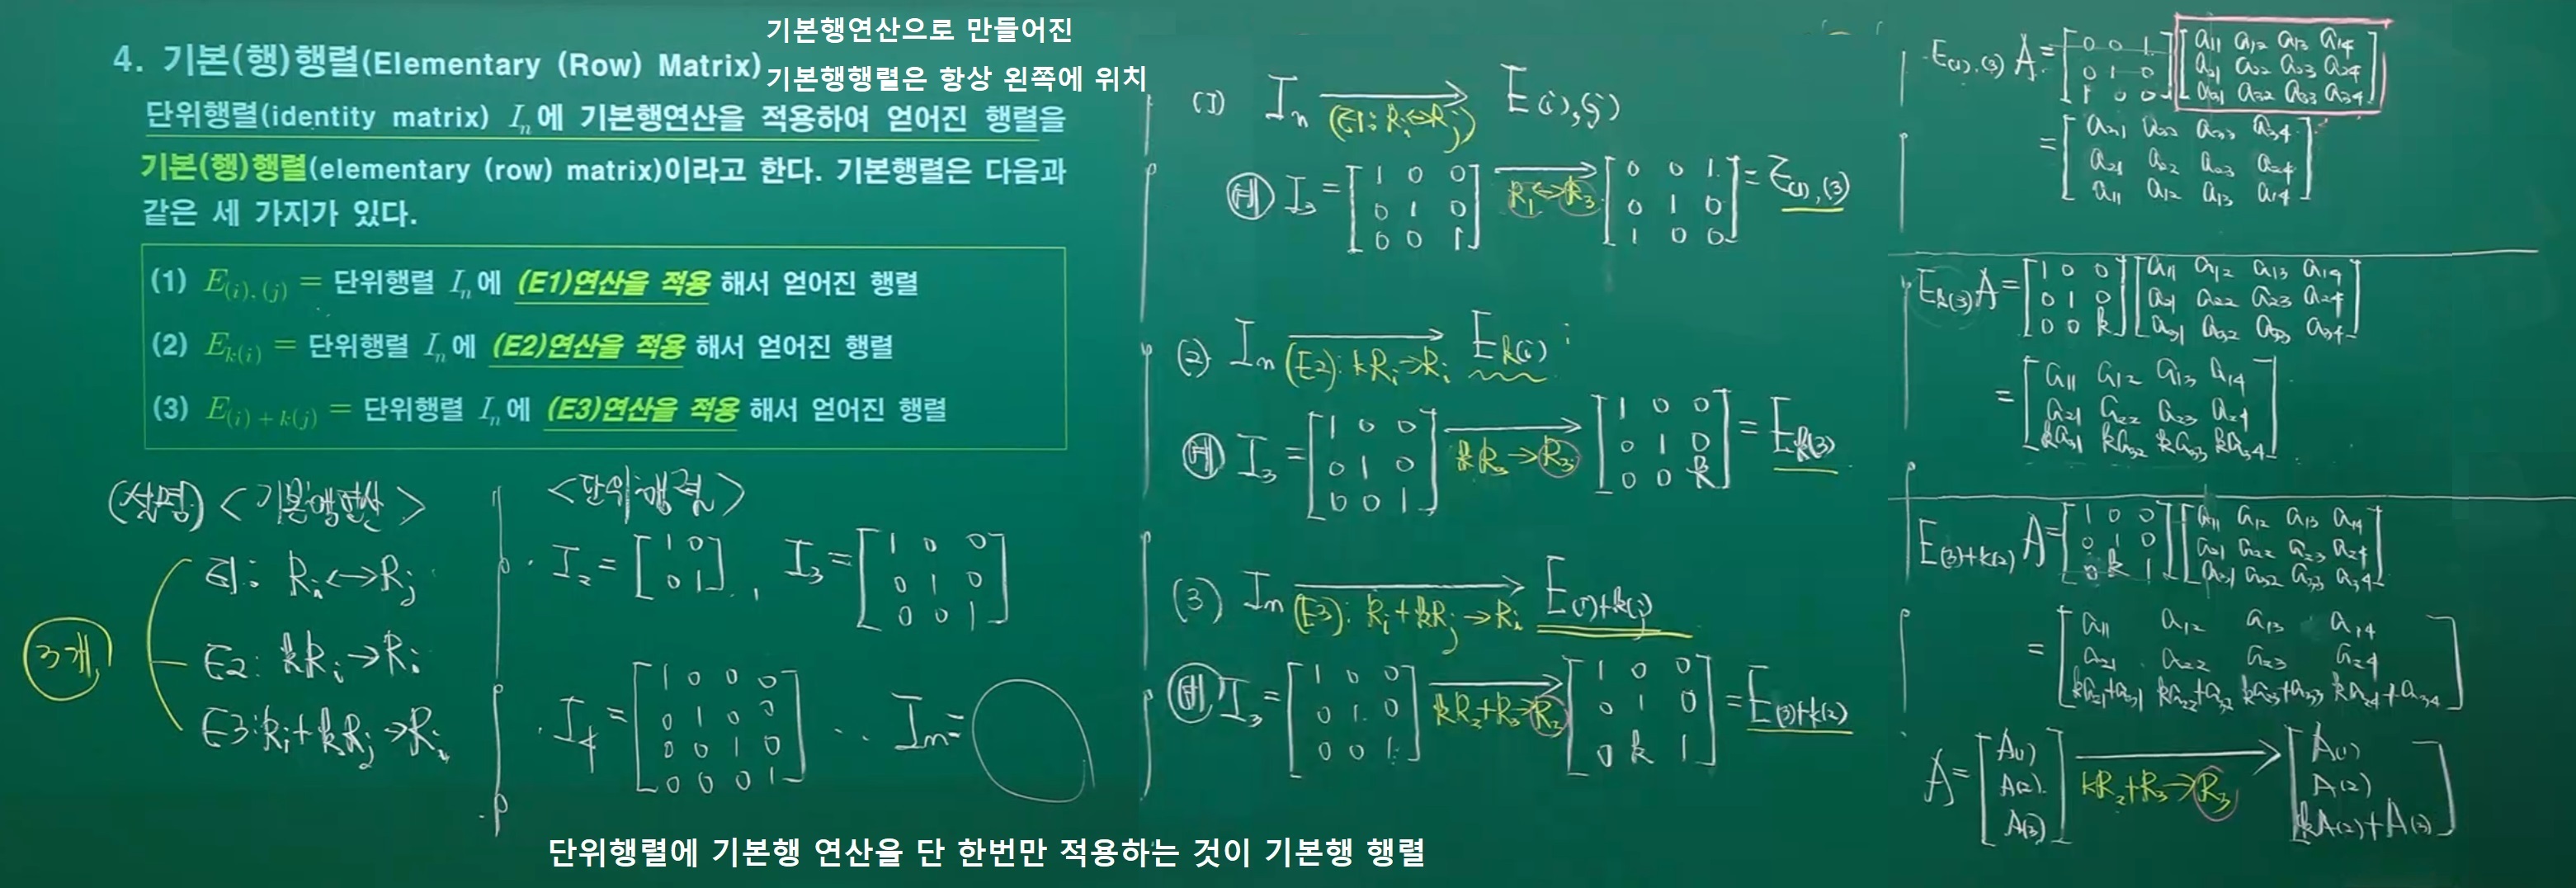 기본행연산으로 만들어진
기본행행렬은 항상 왼쪽에 위치
4. 기본(행)행렬(Elementary (Row) Matrix)
단위행렬(identity matrix) Iₙ에 기본행연산을 적용하여 얻어진 행렬을
기본(행)행렬(elementary (row) matrix)이라고 한다. 기본행렬은 다음과
같은 세 가지가 있다.
(1) E₍ᵢ₎,₍ⱼ₎ = 단위행렬 Iₙ에 (E1)연산을 적용 해서 얻어진 행렬
(2) Eₖ₍ᵢ₎ = 단위행렬 Iₙ에 (E2)연산을 적용 해서 얻어진 행렬
(3) E₍ᵢ₎₊ₖ₍ⱼ₎ = 단위행렬 Iₙ에 (E3)연산을 적용 해서 얻어진 행렬
(설명) <기본행연산>
3개
E1: Rᵢ ↔ Rⱼ
E2: kRᵢ → Rᵢ
E3: Rᵢ + kRⱼ → Rᵢ
<단위행렬>
· I₂ = [1 0
0 1], I₃ = [1 0 0
0 1 0
0 0 1]
· I₄ = [1 0 0 0
0 1 0 0
0 0 1 0
0 0 0 1] ·· Iₙ =
단위행렬에 기본행 연산을 단 한번만 적용하는 것이 기본행 행렬
(1) Iₙ → E(i),(j)
(E1: Rᵢ ↔ Rⱼ)
예 I₃ = [1 0 0
0 1 0
0 0 1] → R₁ ↔ R₃ [0 0 1
0 1 0
1 0 0] = E(1),(3)
(2) Iₙ → Ek(i)
(E2): kRᵢ → Rᵢ
예 I₃ = [1 0 0
0 1 0
0 0 1] → kR₃ → R₃ [1 0 0
0 1 0
0 0 k] = Ek(3)
(3) Iₙ → E(i)+k(j)
(E3): Rᵢ + kRⱼ → Rᵢ
예 I₃ = [1 0 0
0 1 0
0 0 1] → kR₂+R₃ → R₂ [1 0 0
0 1 0
0 k 1] = E(3)+k(2)
· E(1),(3) A = [0 0 1
0 1 0
1 0 0] [a₁₁ a₁₂ a₁₃ a₁₄
a₂₁ a₂₂ a₂₃ a₂₄
a₃₁ a₃₂ a₃₃ a₃₄]
= [a₃₁ a₃₂ a₃₃ a₃₄
a₂₁ a₂₂ a₂₃ a₂₄
a₁₁ a₁₂ a₁₃ a₁₄]
Ek(3) A = [1 0 0
0 1 0
0 0 k] [a₁₁ a₁₂ a₁₃ a₁₄
a₂₁ a₂₂ a₂₃ a₂₄
a₃₁ a₃₂ a₃₃ a₃₄]
= [a₁₁ a₁₂ a₁₃ a₁₄
a₂₁ a₂₂ a₂₃ a₂₄
ka₃₁ ka₃₂ ka₃₃ ka₃₄]
E(3)+k(2) A = [1 0 0
0 1 0
0 k 1] [a₁₁ a₁₂ a₁₃ a₁₄
a₂₁ a₂₂ a₂₃ a₂₄
a₃₁ a₃₂ a₃₃ a₃₄]
= [a₁₁ a₁₂ a₁₃ a₁₄
a₂₁ a₂₂ a₂₃ a₂₄
ka₂₁+a₃₁ ka₂₂+a₃₂ ka₂₃+a₃₃ ka₂₄+a₃₄]
A = [A(1)
A(2)
A(3)] → kR₂+R₃ → R₃ [A(1)
A(2)
kA(2)+A(3)]